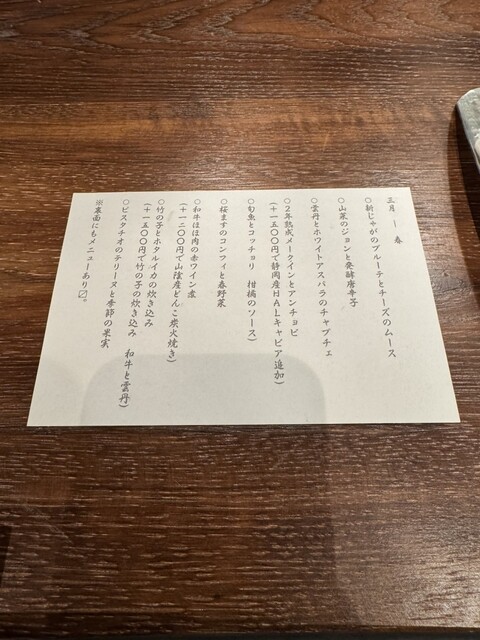 三月 ー 春
○新じゃがのブルーテとチーズのムース
○山菜のジョンと発酵唐辛子
○雲丹とホワイトアスパラのチャプチェ
○2年熟成メークインとアンチョビ
(+一五〇〇円で静岡産HALキャビア追加)
○旬魚とコッチョリ 柑橘のソース)
○桜ますのコンフィと春野菜
○和牛ほほ肉の赤ワイン煮
(+一二〇〇円で山陰産どんこ炭火焼き)
○竹の子とホタルイカの炊き込み
(+一五〇〇円で竹の子の炊き込み 和牛と雲丹)
○ピスタチオのテリーヌと季節の果実
※裏面にもメニューあり〼。